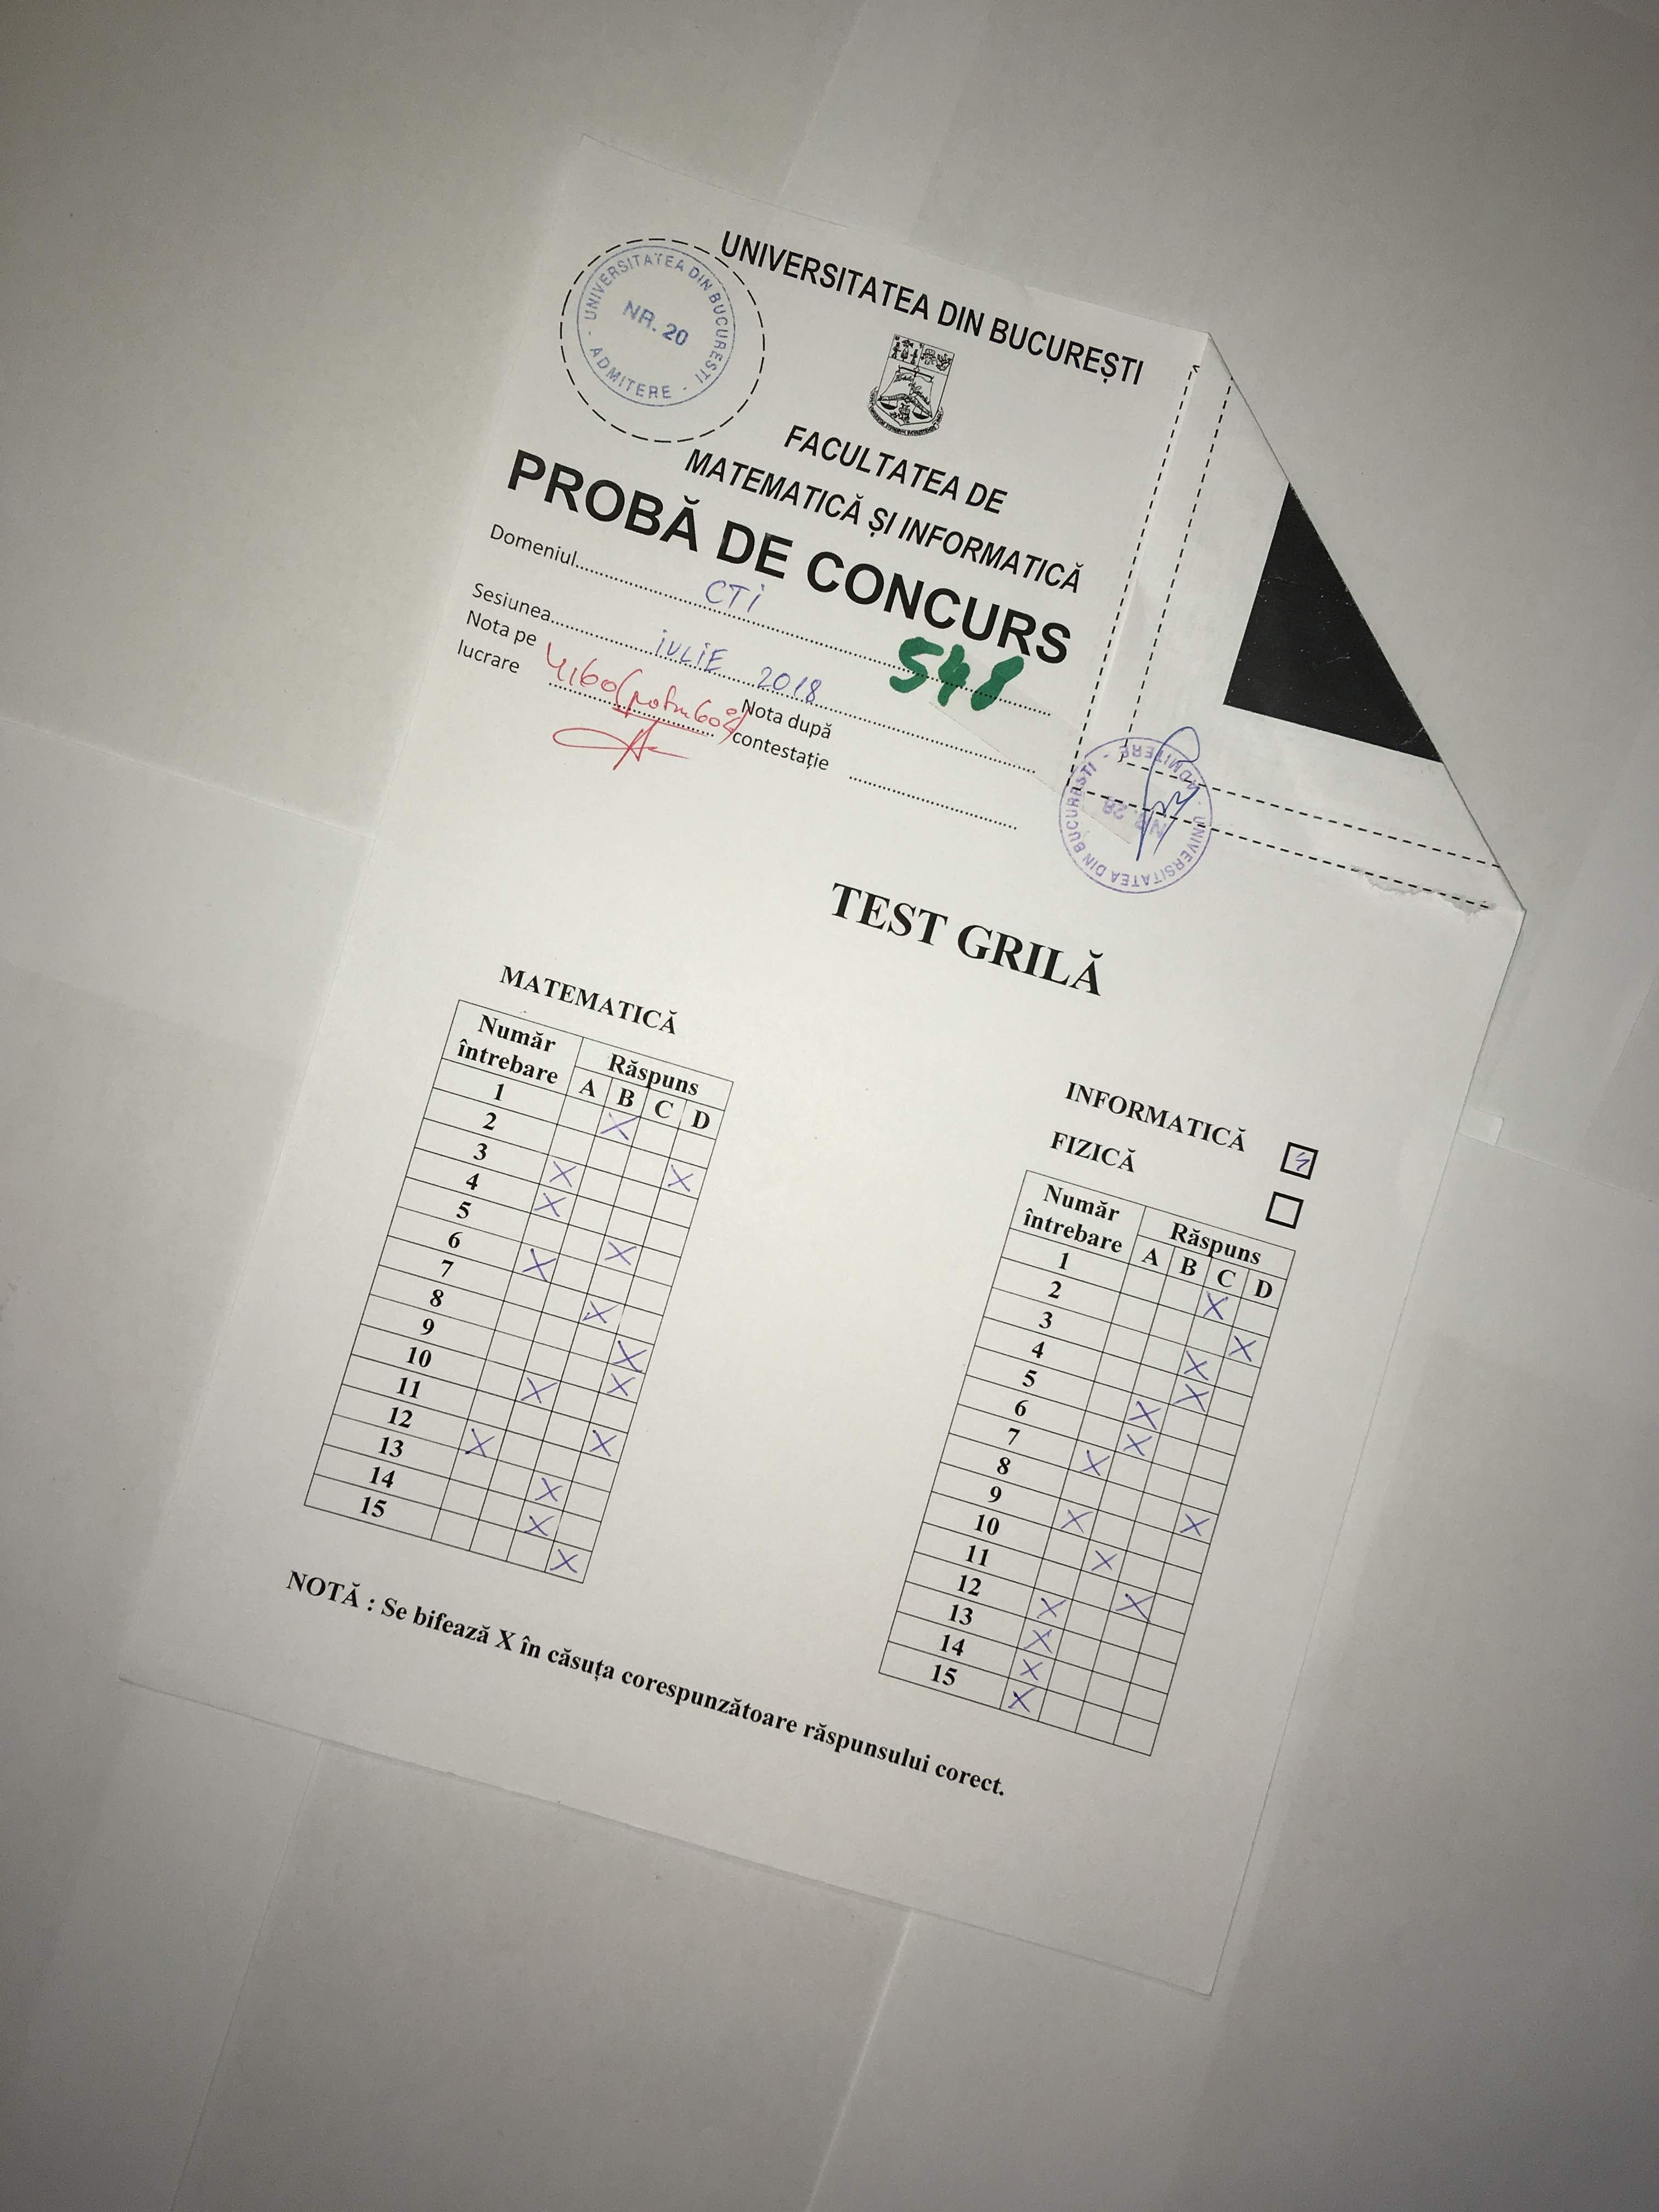 UNIVERSITATEA DIN BUCUREȘTI
UNIVERSITATEA DIN BUCURESTI - ADMITERE -
NR. 20
FACULTATEA DE
MATEMATICĂ ȘI INFORMATICĂ
PROBĂ DE CONCURS
Domeniul CTI
548
Sesiunea IULIE 2018
Nota pe lucrare 4,60
Nota după contestație
UNIVERSITATEA DIN BUCURESTI - ADMITERE -
NR. 28
TEST GRILĂ
MATEMATICĂ
Număr întrebare Răspuns
A B C D
1 X
2 X
3 X
4 X
5 X
6 X
7 X
8 X
9 X
10 X
11 X
12 X
13 X
14 X
15 X
INFORMATICĂ
FIZICĂ
Număr întrebare Răspuns
A B C D
1 X
2 X
3 X
4 X
5 X
6 X
7 X
8 X
9 X
10 X
11 X
12 X
13 X
14 X
15 X
NOTĂ : Se bifează X în căsuța corespunzătoare răspunsului corect.